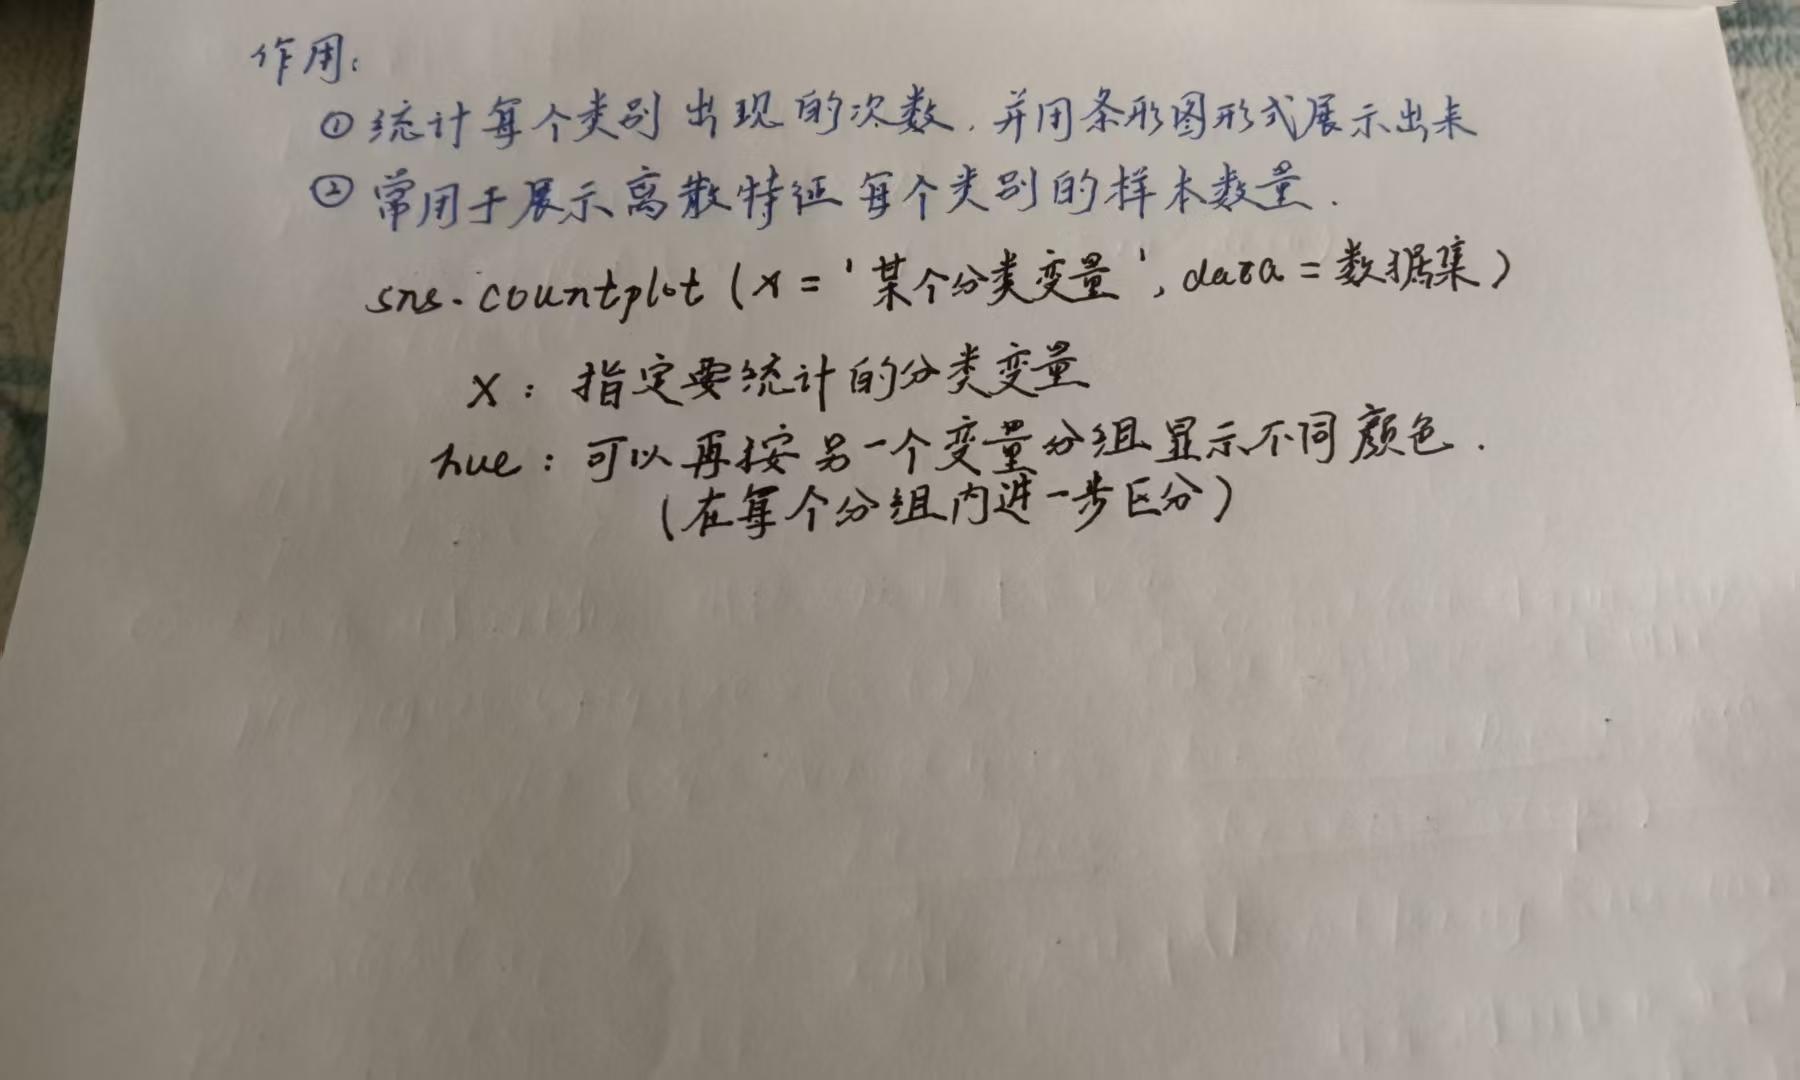 作用：
① 统计每个类别出现的次数，并用条形图形式展示出来
② 常用于展示离散特征每个类别的样本数量.
sns.countplot (x = '某个分类变量', data = 数据集)
x：指定要统计的分类变量
hue：可以再按另一个变量分组显示不同颜色.
(在每个分组内进一步区分)